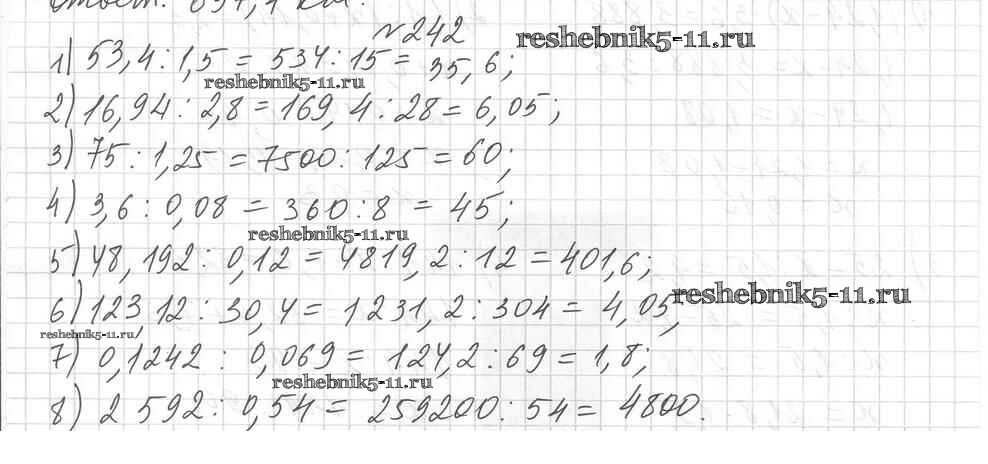 №242
reshebnik5-11.ru
1) 53,4 : 1,5 = 534 : 15 = 35,6;
reshebnik5-11.ru
2) 16,94 : 2,8 = 169,4 : 28 = 6,05;
3) 75 : 1,25 = 7500 : 125 = 60;
4) 3,6 : 0,08 = 360 : 8 = 45;
reshebnik5-11.ru
5) 48,192 : 0,12 = 4819,2 : 12 = 401,6;
6) 123,12 : 30,4 = 1231,2 : 304 = 4,05;
reshebnik5-11.ru
reshebnik5-11.ru/
7) 0,1242 : 0,069 = 124,2 : 69 = 1,8;
reshebnik5-11.ru
8) 2 592 : 0,54 = 259200 : 54 = 4800.